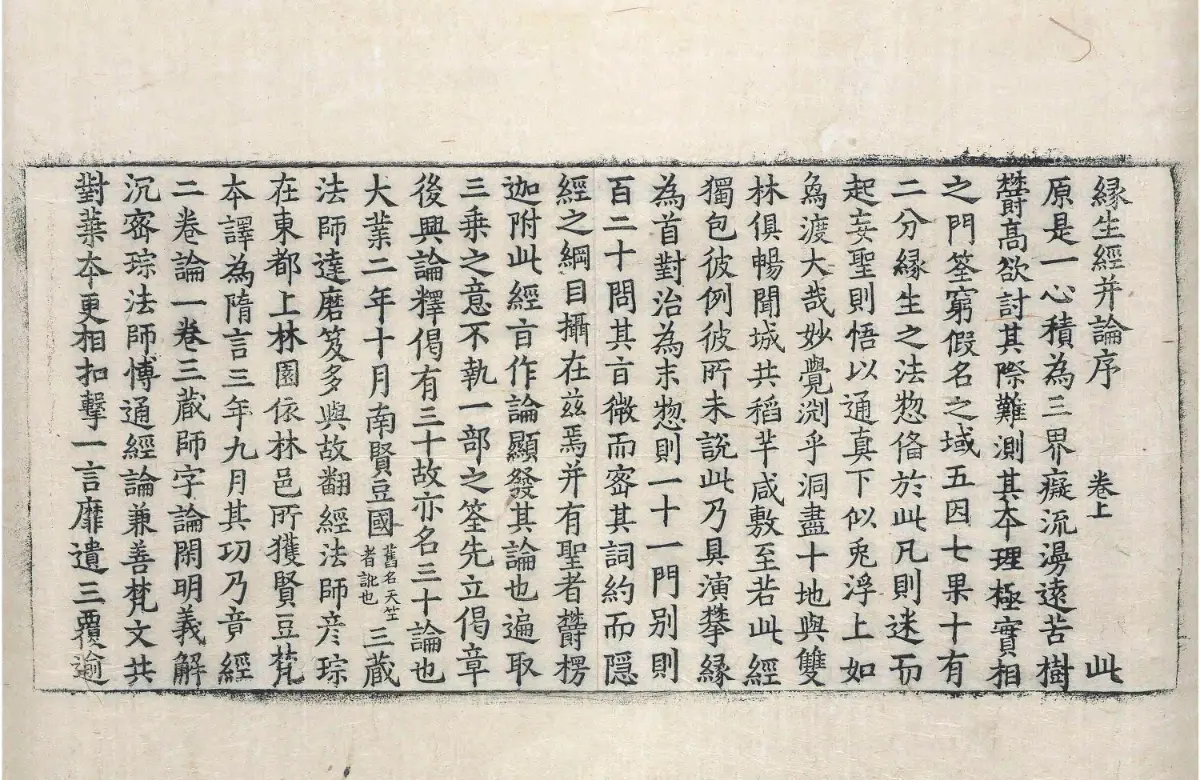 緣生經并論序 卷上 此
原是一心積為三界癡流漫遠苦樹
欝高欲討其際難測其本理極實相
之門筌窮假名之域五因七果十有
二分緣生之法惣俻於此凡則迷而
起妄聖則悟以通真下似兎浮上如
爲渡大哉妙覺渕乎洞盡十地與雙
林俱暢聞城共稻芉咸敷至若此經
獨包彼例彼所未説此乃具演攀緣
為首對治為末惣則一十一門別則
百二十問其㫖微而宻其詞約而隱
經之綱目攝在兹焉并有聖者欝楞
迦附此經㫖作論顯發其論也遍取
三乗之意不執一部之筌先立偈章
後興論釋偈有三十故亦名三十論也
大業二年十月南賢豆國舊名天竺者訛也三蔵
法師達磨笈多與故翻經法師彦琮
在東都上林園依林邑所獲賢豆梵
本譯為隋言三年九月其功乃竟經
二卷論一卷三蔵師字論閑明義解
沉宻琮法師愽通經論兼善梵文共
對葉本更相扣擊一言靡遺三覆逾